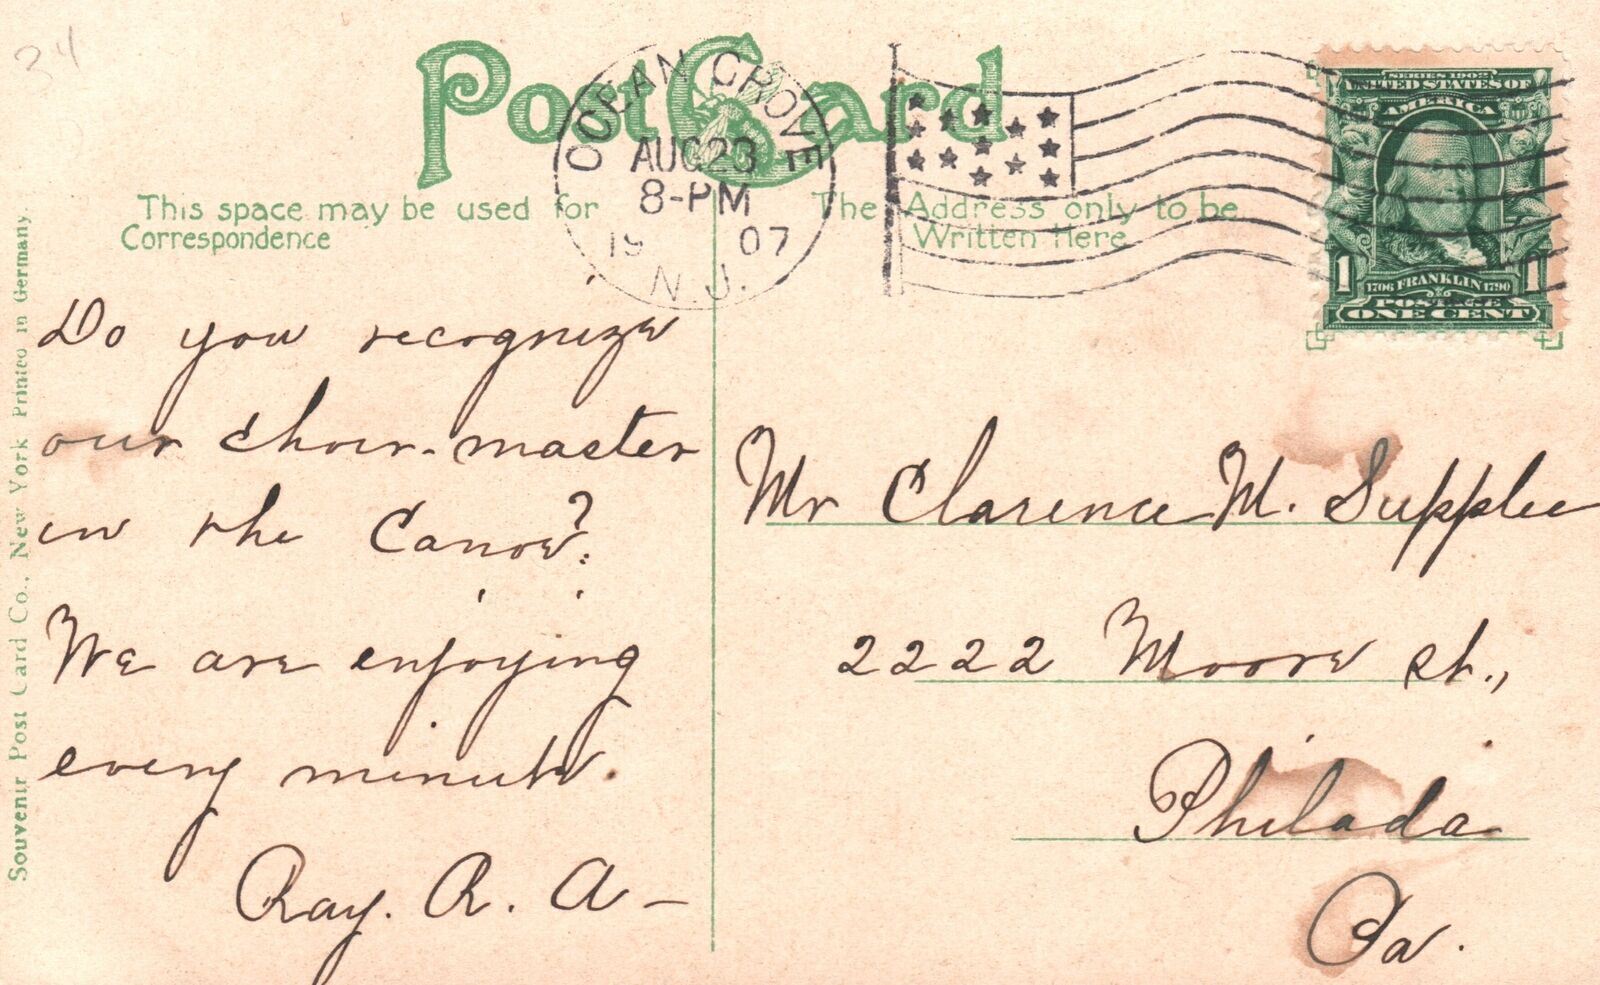 34
Post Card
OCEAN GROVE
AUG 23
8-PM
1907
N.J.
SERIES 1902
UNITED STATES OF
AMERICA
1706 FRANKLIN 1790
POSTAGE
1 ONE CENT 1
This space may be used for
Correspondence
The Address only to be
Written Here
Souvenir Post Card Co., New York Printed in Germany.
Do you recognize
our choir-master
in the Canoe?
We are enjoying
every minute.
Ray. R. A-
Mr Clarence M. Supplee
2222 Moore st.,
Philada
Pa.